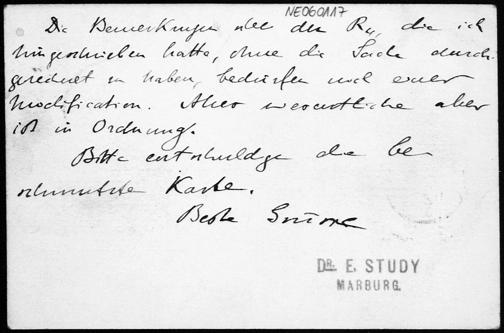 NE060117
Die Bemerkungen über den R₄, die ich
hingeschrieben hatte, ohne die Sache durch-
gerechnet zu haben, bedürfen noch einer
Modification. Alles wesentliche aber
ist in Ordnung.
Bitte entschuldge die be
schmutzte Karte.
Beste Grüsse
DR. E. STUDY
MARBURG.